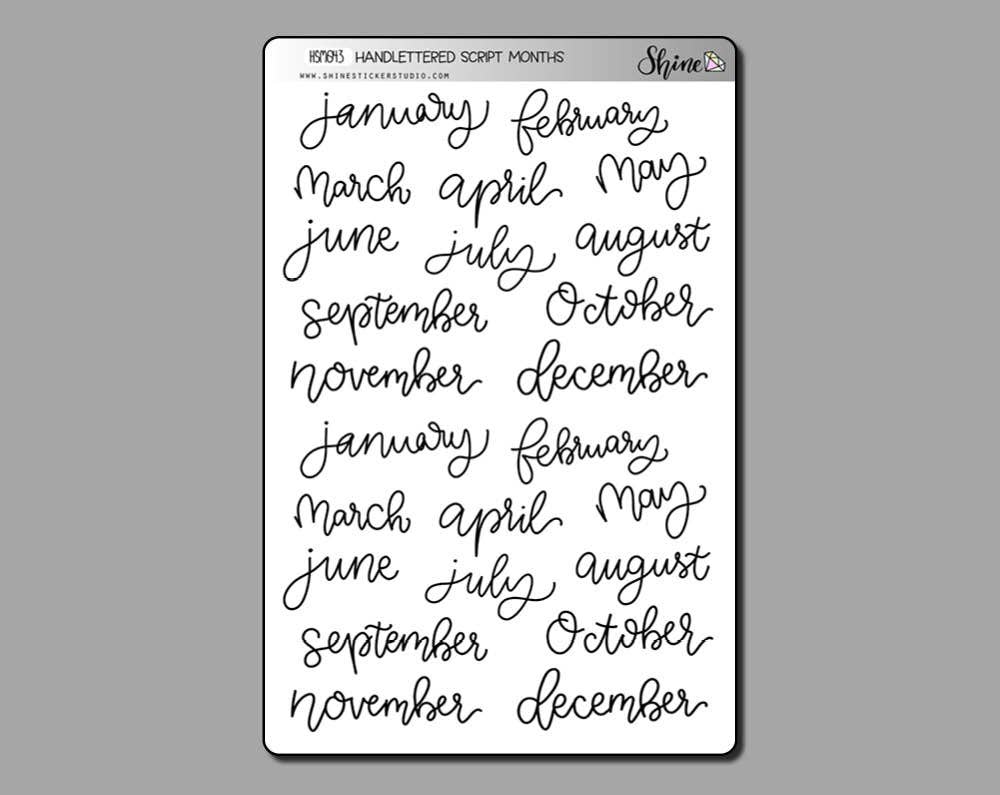 HSM643 HANDLETTERED SCRIPT MONTHS Shine
WWW.SHINESTICKERSTUDIO.COM
january february
march april may
june july august
september October
november december
january february
march april may
june july august
september October
november december